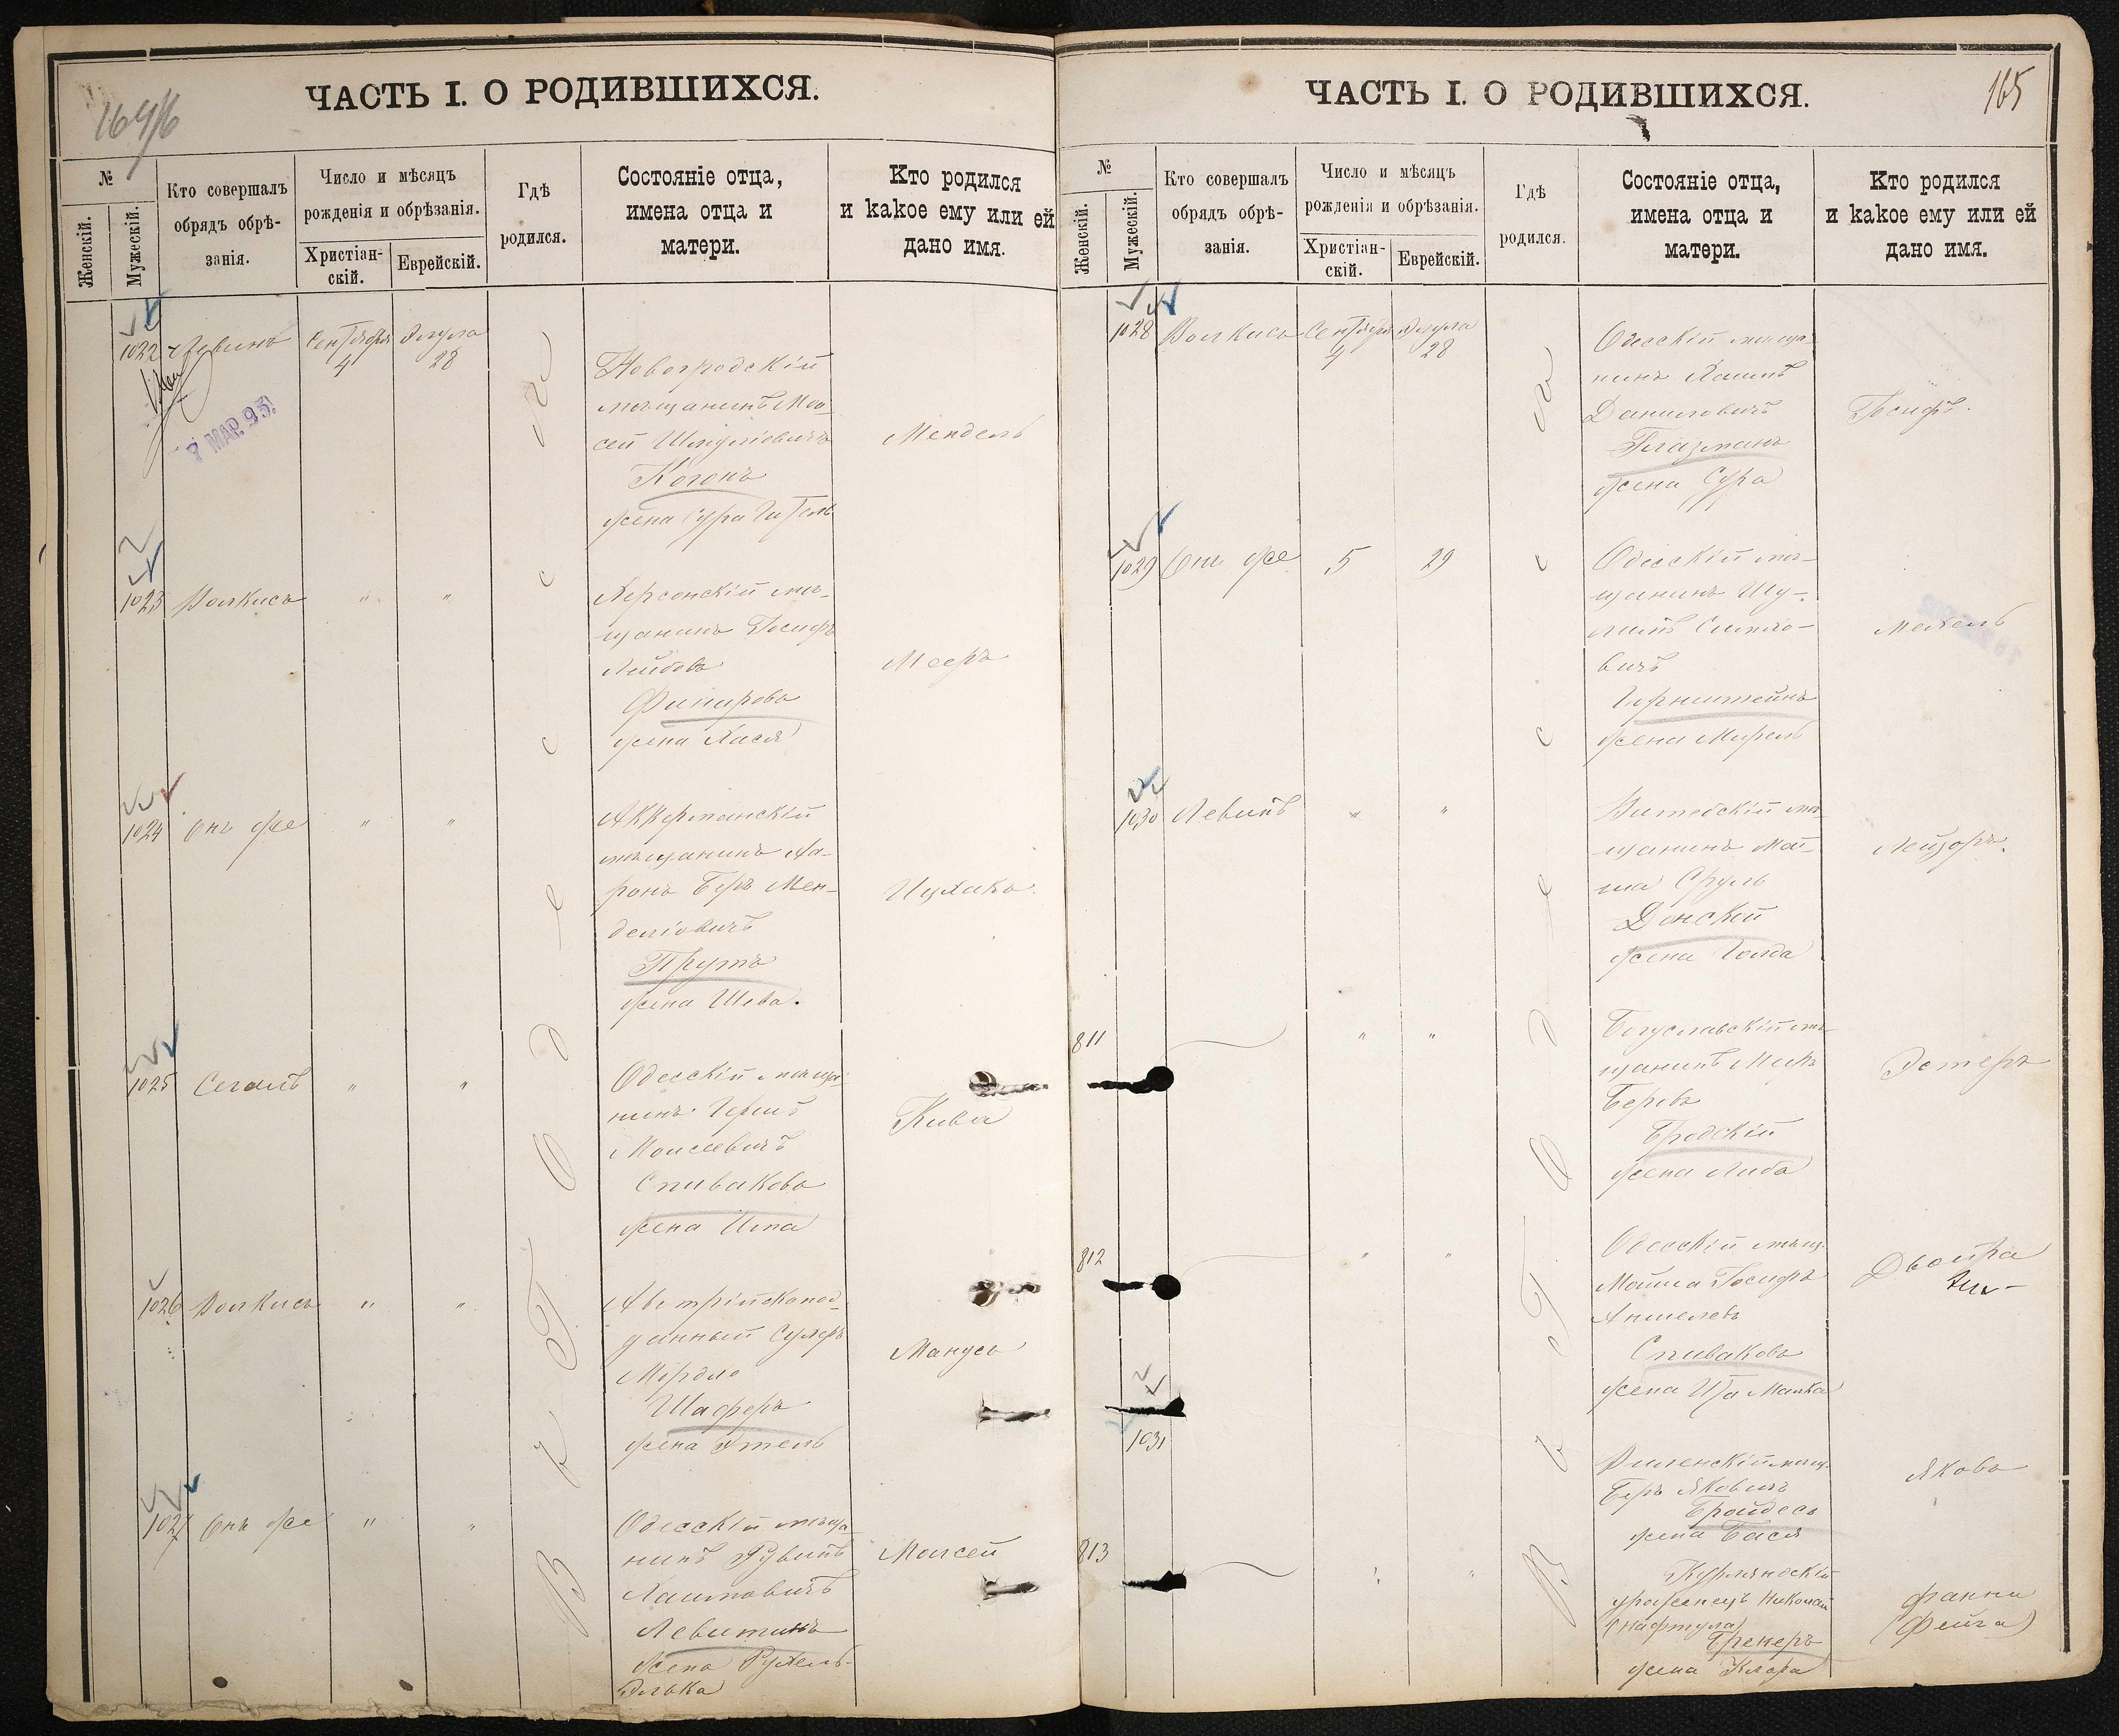 164/б
ЧАСТЬ I. О РОДИВШИХСЯ.
№
Женскій.
Мужескій.
Кто совершалъ
обрядъ обрѣ-
занія.
Число и мѣсяцъ
рожденія и обрѣзанія.
Христіан-
скій.
Еврейскій.
Гдѣ
родился.
Состояніе отца,
имена отца и
матери.
Кто родился
и какое ему или ей
дано имя.
1022 Левинъ Сентября 4 Элула 28
7 МАР. 95
Новогродскій
мѣщанинъ Мои-
сей Шмулiовичъ
Когонъ
жена Сура Гитель
Мендель
1023 Волкисъ " "
Херсонскій мѣ-
щанинъ Іосифъ
Лейбовъ
Фикировъ
жена Хася
Мееръ
1024 Онъ же " "
Аккерманскій
мѣщанинъ Аа-
ронъ Беръ Мен-
деліовичъ
Прутъ
жена Шева.
Ицхакъ
1025 Сегалъ " "
Одесскій мѣща-
нинъ Гершъ
Моисеевичъ
Спиваковъ
жена Ита
Кива
1026 Волкисъ " "
Австрійскопод-
данный Сухеръ
Мордко
Шаферъ
жена Этель
Манусъ
1027 Онъ же " "
Одесскій мѣща-
нинъ Рувинъ
Хаимовичъ
Левитинъ
жена Рухель-
Элька
Моисей
Въ Г. Одессѣ
165
ЧАСТЬ I. О РОДИВШИХСЯ.
№
Женскій.
Мужескій.
Кто совершалъ
обрядъ обрѣ-
занія.
Число и мѣсяцъ
рожденія и обрѣзанія.
Христіан-
скій.
Еврейскій.
Гдѣ
родился.
Состояніе отца,
имена отца и
матери.
Кто родился
и какое ему или ей
дано имя.
1028 Волкисъ Сентября 4 Элула 28
Одесскій мѣща-
нинъ Хаимъ
Даниловичъ
Глазманъ
жена Сура
Іосифъ.
1029 Онъ же 5 29
Одесскій мѣ-
щанинъ Шу-
лимъ Симхо-
вичъ
Гернштейнъ
жена Мирель
1030 Левинъ " "
Витебскій мѣ-
щанинъ Мой-
ша Сруль
Донскій
жена Голда
Лейзоръ.
811 " "
Богуславскій мѣ-
щанинъ
Беровъ
Бродскій
жена Либа
Эстеръ
812 " "
Одесскій мѣщ.
Мойша Іосифъ
Аншелевъ
Спиваковъ
жена Ита Малка
Двойра
1031
Виленскій мѣщ.
Беръ Яковичъ
Брайдесъ
жена Бася
Яковъ
813 " "
Курляндскій
уроженецъ Николай
(Нафтула)
Брекеръ
жена Клара
Фанни
(Фейга)
Въ Г. Одессѣ